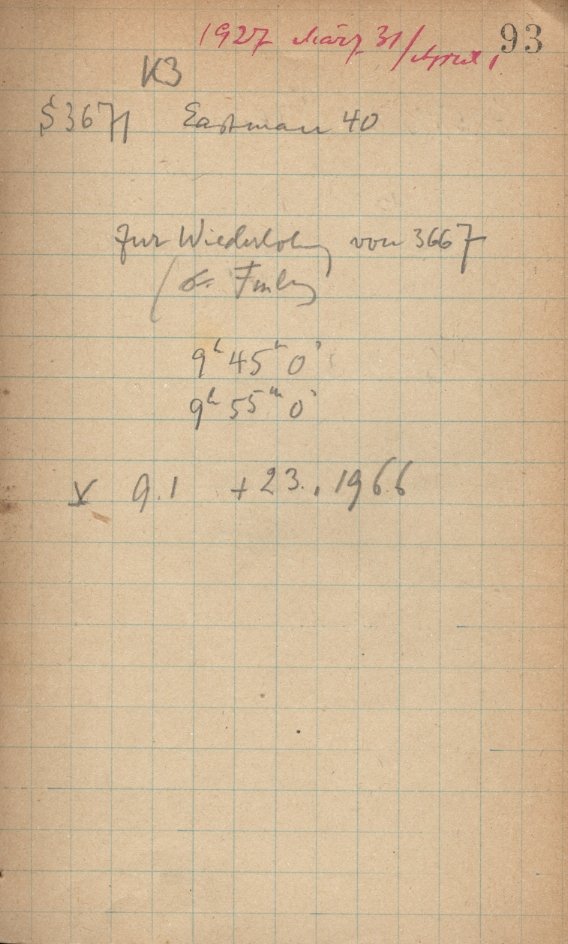 1927 März 31/April 1 93
K3
S 3671 Eastman 40
Zur Wiederholung von 3667
(F. Finlay)
9h 45m 0s
9h 55m 0s
9.1 +23., 1966